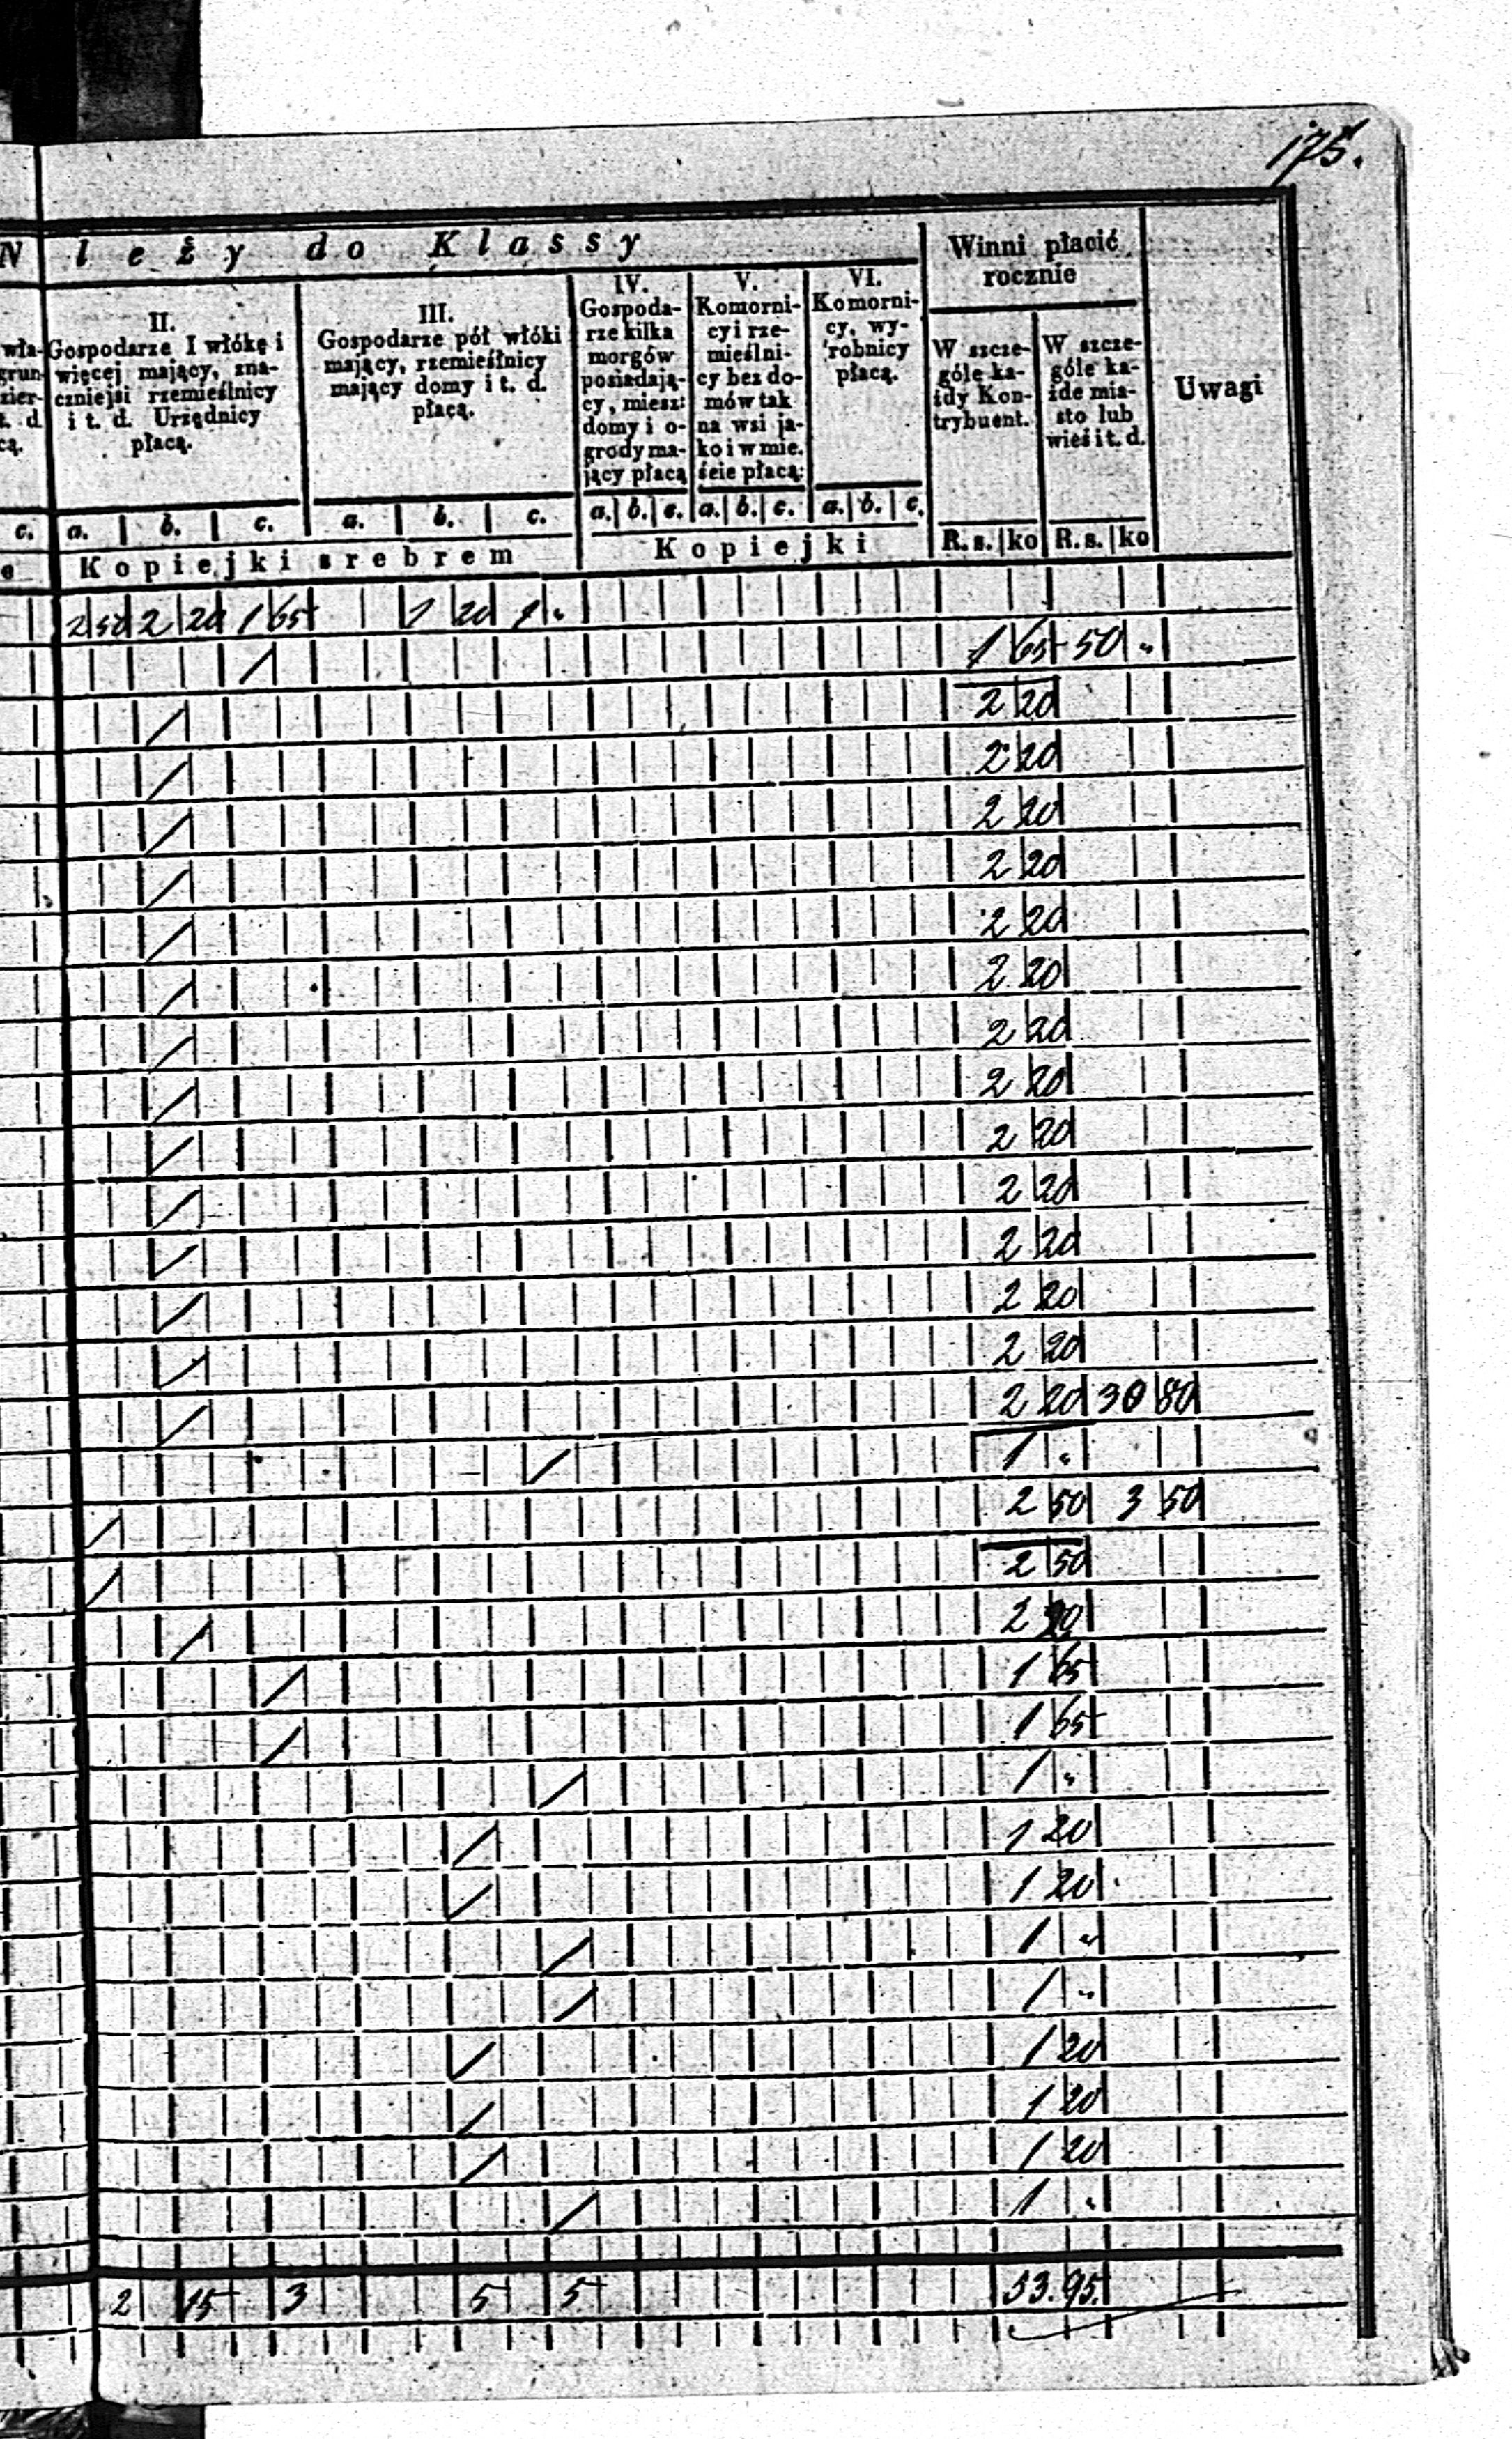 175.
N l e ż y d o K l a s s y
Winni płacić rocznie
Uwagi
wła-
grun-
zier-
t. d
cą.
II.
Gospodarze I włókę i
więcej mający, zna-
czniejsi rzemieślnicy
i t. d. Urzędnicy
płacą.
III.
Gospodarze pół włóki
mający, rzemieślnicy
mający domy i t. d.
płacą.
IV.
Gospoda-
rze kilka
morgów
posiadają-
cy, miesz:
domy i o-
grody ma-
jący płacą
V.
Komorni-
cy i rze-
mieślni-
cy bez do-
mów tak
na wsi ja-
ko i w mie.
ście płacą:
VI.
Komorni-
cy, wy-
robnicy
płacą.
W szcze-
góle ka-
żdy Kon-
trybuent.
W szcze-
góle ka-
żde mia-
sto lub
wieś i t. d.
c. a. b. c. a. b. c. a. b. c. a. b. c. a. b. c.
e Kopiejki srebrem Kopiejki R.s. ko R.s. ko
2 50 2 20 1 65 1 20 1 .
/ 1 65 50 "
/ 2 20
/ 2 20
/ 2 20
/ 2 20
/ 2 20
/ 2 20
/ 2 20
/ 2 20
/ 2 20
/ 2 20
/ 2 20
/ 2 20
/ 2 20
/ 2 20 30 80
/ 1 "
/ 2 50 3 50
/ 2 50
/ 2 20
/ 1 65
/ 1 65
/ 1 "
/ 1 20
/ 1 20
/ 1 "
/ 1 "
/ 1 20
/ 1 20
/ 1 20
/ 1 "
2 15 3 5 5 53.95.